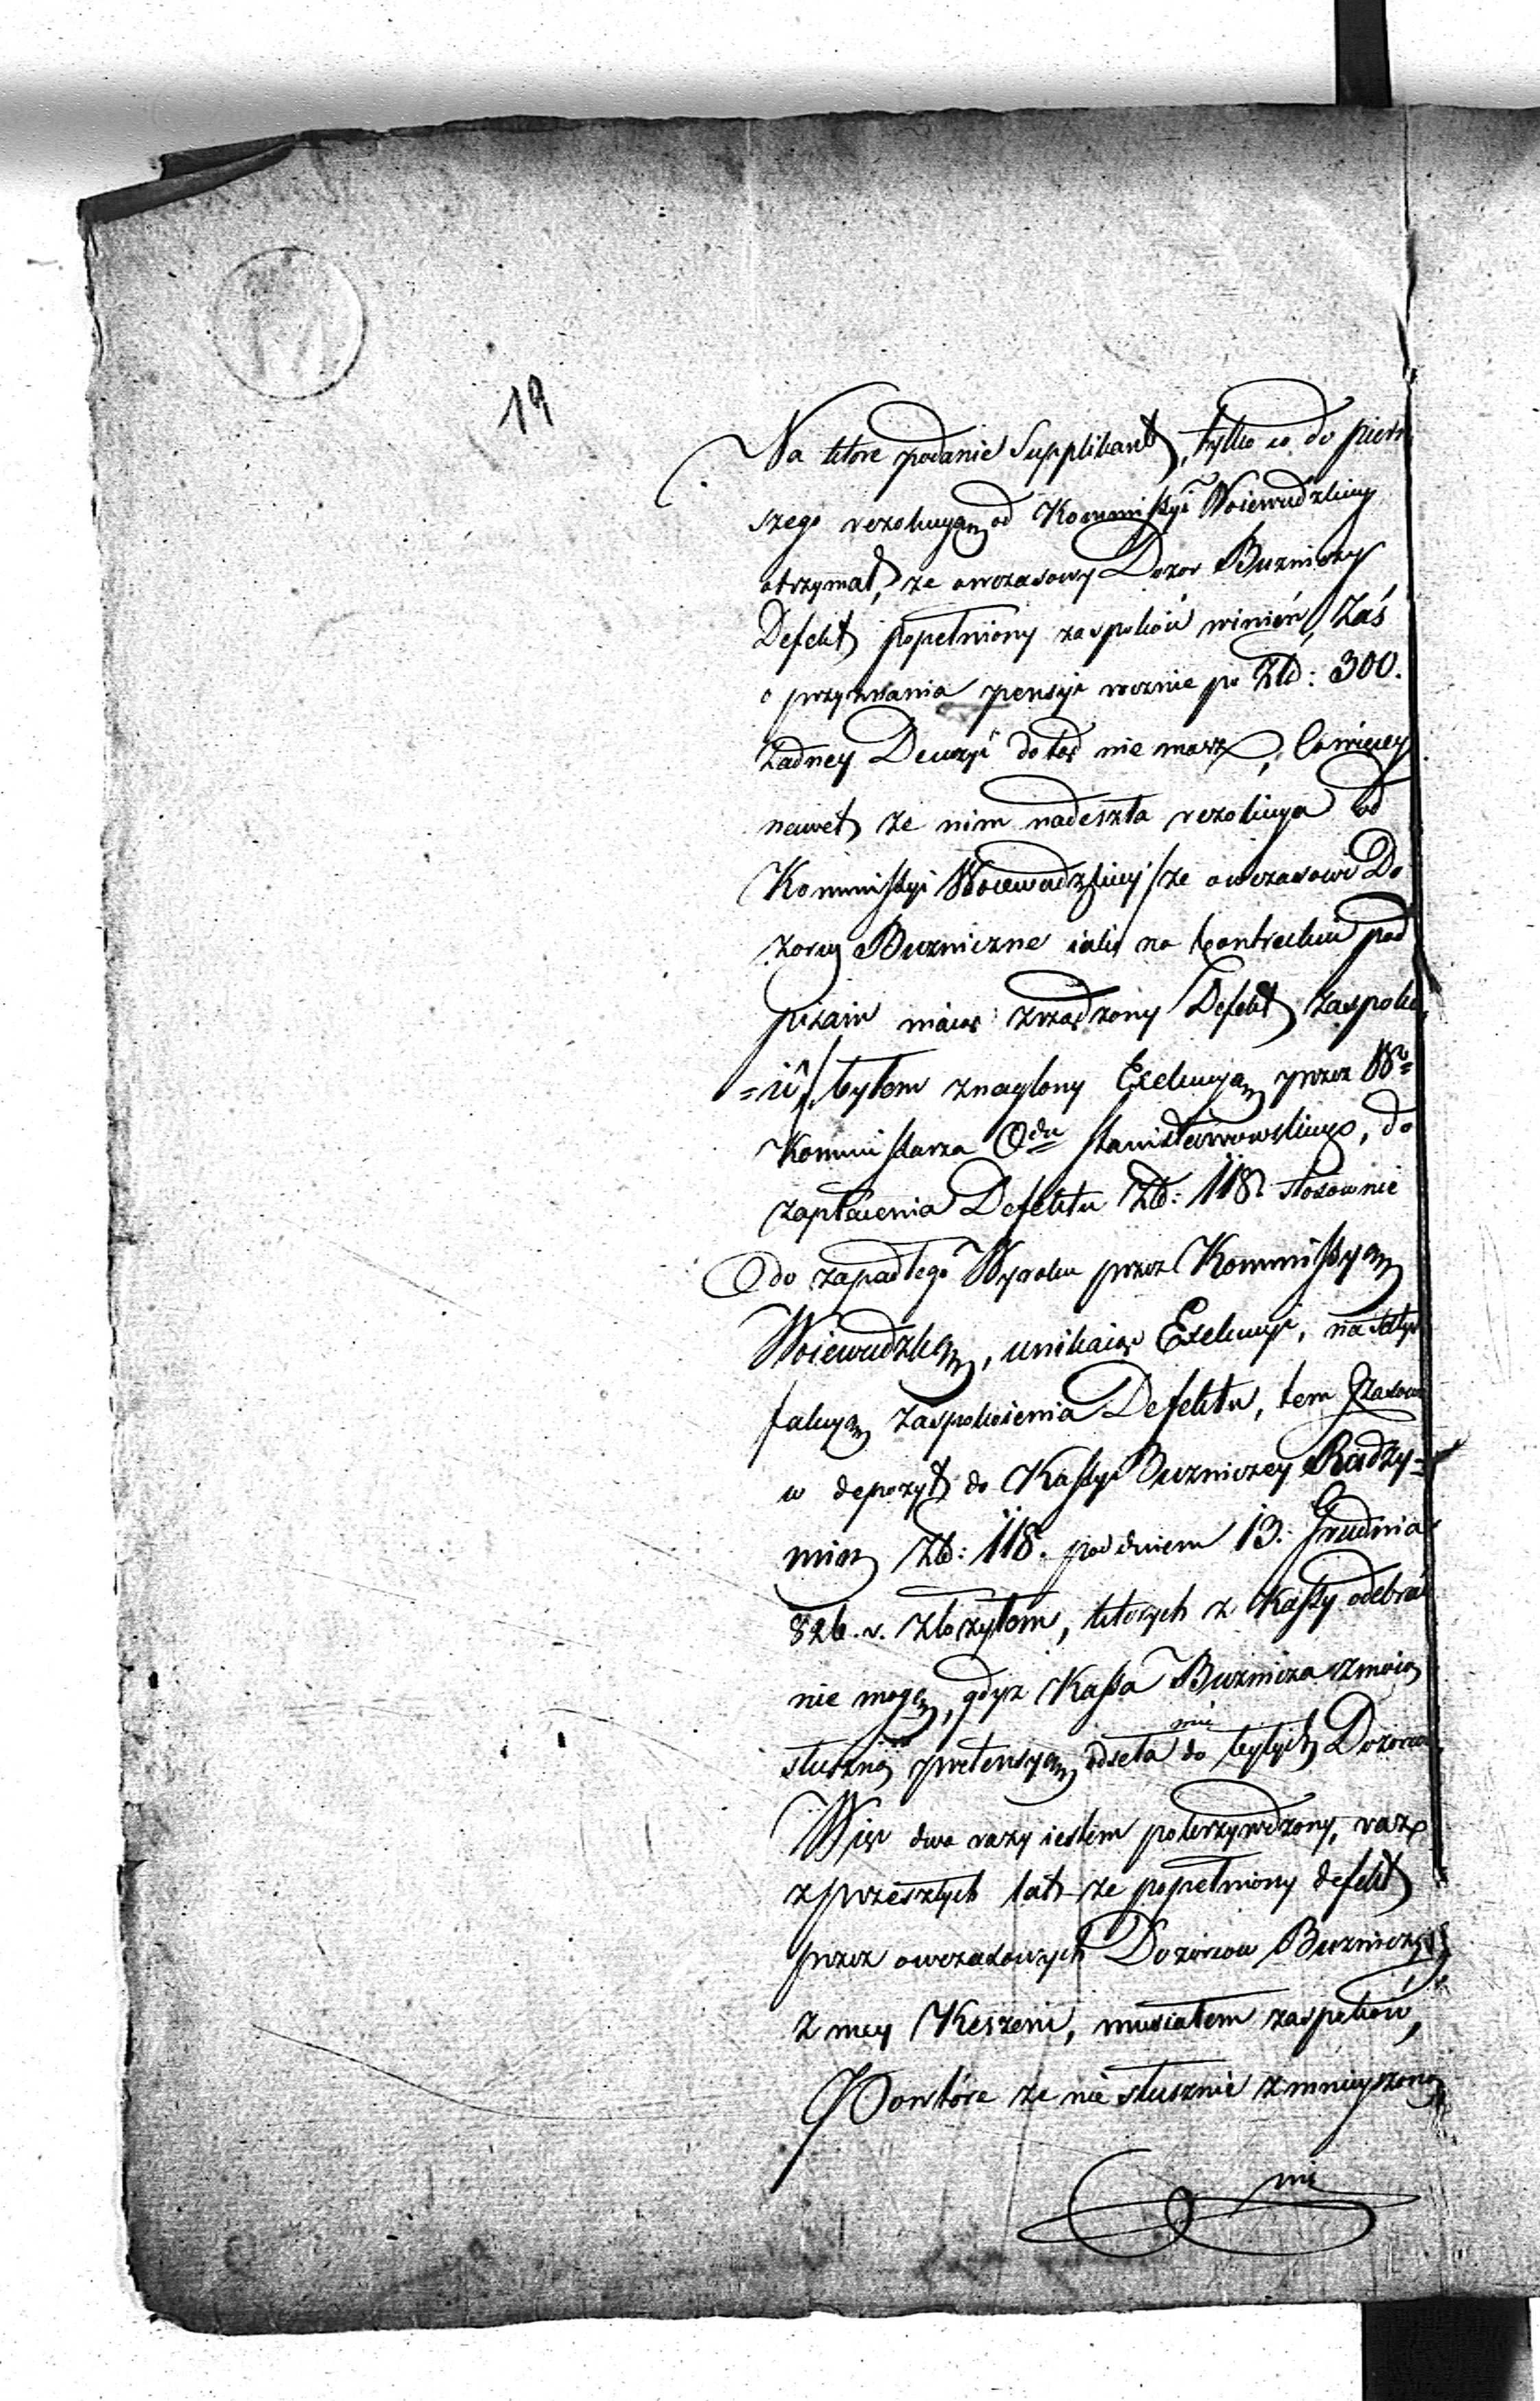 19
Na ktore podanie Supplikant, tylko co do pierw
szego rezolucyą od Kommissyi Woiewudzkiey
otrzymał, że owczasowy Dozor Buzniczy
Defekt popełniony zaspokoić winień, Zaś
o przyznania pensyi rocznie po Złł: 300.
Żadney Decyzyi dotąd nie masz, Co więcey
nawet że nim nadeszła rezolucya od
Kommissyi Woiewudzkiey / że owczasowe Do
zory Buzniczne iako na Contrakcie pod
pisani maią zrządzony Defekt zaspoko
=ić /, byłem znaglony Exekucyą przez W°=
Kommissarza Odu Stanisławowskiego, do
zapłacenia Defektu Złł: 118 stosownie
do zapadłego Wyroku przez Kommissyą
Woiewudzką, unikaiąc Exekucyi, na satys
fakcyą zaspokoienia Defektu, tem Czasowo
w depozyt do Kassy Buzniczey Radzy=
mina Złł: 118. pod dniem 13. Grudnia
826. r. złożyłem, ktorych z Kassy odebrać
nie mogę, gdyż Kassa Buznicza z moią
słuszną pretensyą odseła mię do byłych Dozorcow
Więc dwa razy iestem pokrzywdzony, raz
z przeszłych lat że popełniony defekt
przez owczasowych Dozorcow Buzniczych
z mey Keszeni, musiałem zaspokoić,
Powtóre że nie słusznie zmnieyszono
mi